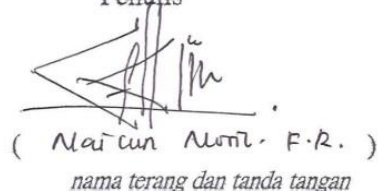 Penulis
( Naicun Nuril. F.R. )
nama terang dan tanda tangan